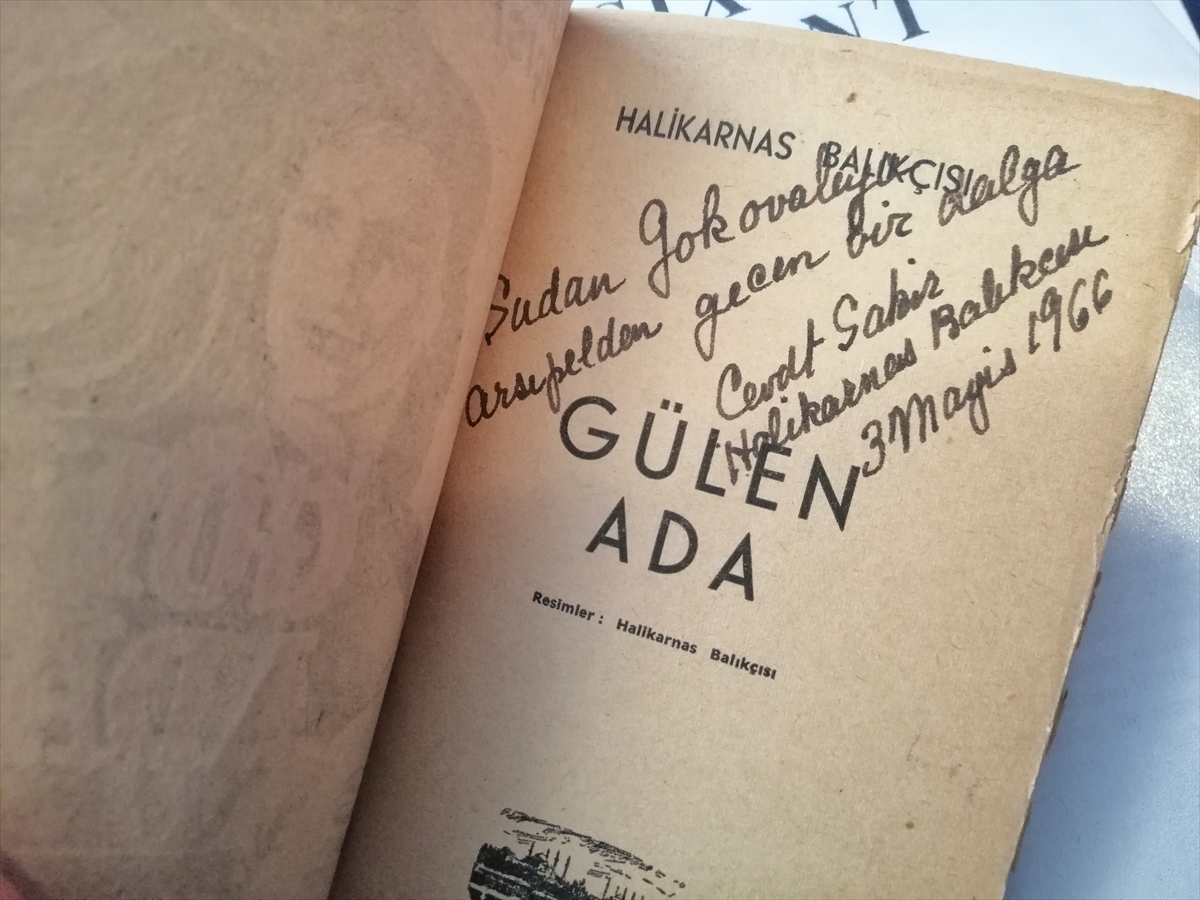 NT
HALİKARNAS BALIKÇISI
Şadan Gökovalıya
arşipelden geçen bir dalga
Cevdt Şakir
Halikarnas Balıkcısı
3 Mayis 1966
GÜLEN
ADA
Resimler : Halikarnas Balıkçısı